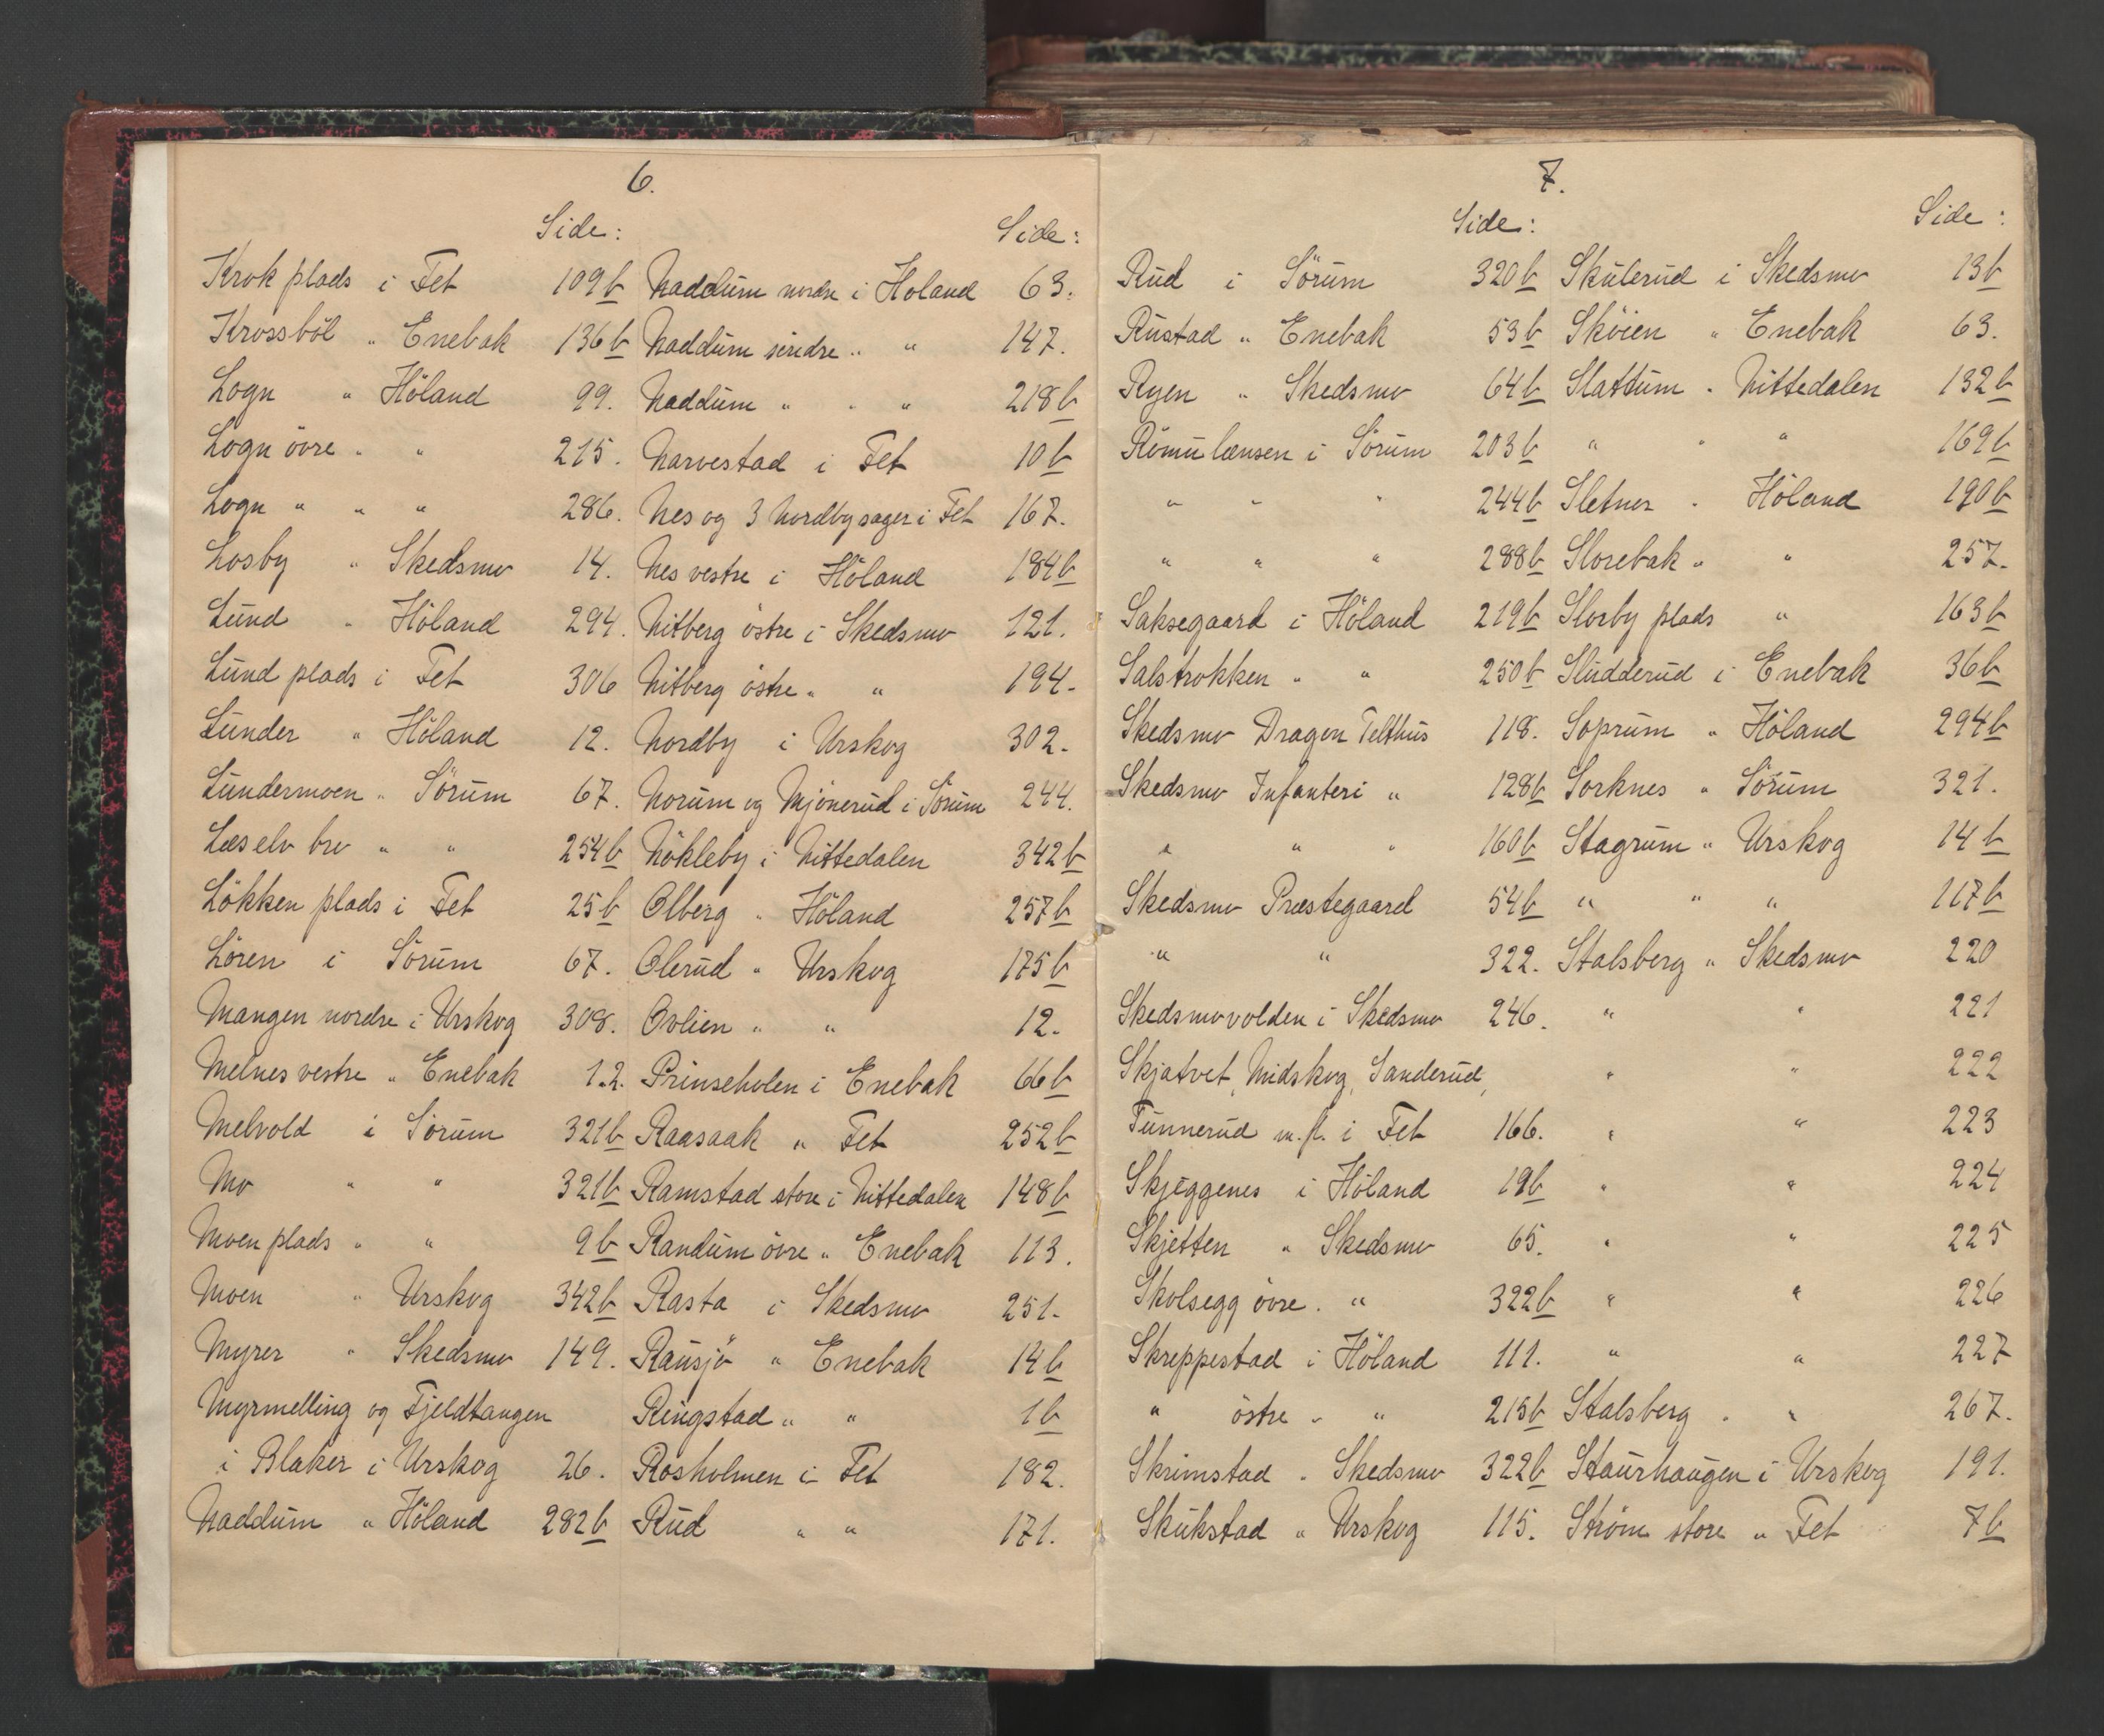 6.
Side:
Krok plads i Fet 109b
Krossböl " Enebak 136b
Logn " Höland 99.
Logn övre " " 215.
Logn " " " 286.
Losby " Skedsmo 14.
Lund " Höland 294.
Lund plads i Fet 306
Lunder " Höland 12.
Lundermoen " Sörum 67.
Læselv bro " " 254b
Lökken plads i Fet 25b
Lören i Sörum 67.
Mangen nordre i Urskog 308.
Melnes vestre " Enebak 12.
Melvold i Sörum 321b
Mo " " 321b
Moen plads " " 9b
Moen " Urskog 342b
Myrer " Skedsmo 149.
Myrmelling og Fjeldtangen
i Blaker i Urskog 26.
Naddum " Höland 282b
Side:
Naddum nordre i Höland 63.
Naddum söndre " " 147.
Naddum " " " 218b
Narvestad i Fet 10b
Nes og 3 Nordbysager i Fet 167.
Nes vestre i Höland 184b
Nitberg östre i Skedsmo 121.
Nitberg östre " " 194.
Nordby i Urskog 302.
Norum og Mjönerud i Sörum 244.
Nökleby i Nittedalen 342b
Olberg " Höland 257b
Olerud " Urskog 175b
Ovlien " " 12.
Prinseholen i Enebak 66b
Raasaak " Fet 252b
Ramstad store i Nittedalen 148b
Randum övre " Enebak 113.
Rasta i Skedsmo 251.
Rausjö " Enebak 14b
Ringstad " " 1b
Rosholmen i Fet 182.
Rud " " 171.
7.
Side:
Rud i Sörum 320b
Rustad " Enebak 53b
Ryen " Skedsmo 64b
Römulænsen i Sörum 203b
" " " 244b
" " " 288b
Saksegaard i Höland 219b
Salstrokken " " 250b
Skedsmo Dragon Telthus 118.
Skedsmo Infanteri " 128b
" " " 160b
Skedsmo Præstegaard 54b
" " 322.
Skedsmovolden i Skedsmo 246.
Skjatvet, Midskog, Sanderud,
Tunnerud m.fl. i Fet 166.
Skjeggenes i Höland 19b
Skjetten " Skedsmo 65.
Skolsegg övre " " 322b
Skreppestad i Höland 111.
" östre " " 215b
Skrimstad " Skedsmo 322b
Skukstad " Urskog 115.
Side:
Skulerud i Skedsmo 13b
Sköien " Enebak 63.
Slattum " Nittedalen 132b
" " " 169b
Sletner " Höland 190b
Slorebak " " 257.
Slorby plads " 163b
Sludderud i Enebak 36b
Soprum " Höland 294b
Sorknes " Sörum 321.
Stagrum " Urskog 14b
" " " 117b
Stalsberg " Skedsmo 220
" " 221
" " 222
" " 223
" " 224
" " 225
" " 226
" " 227
Stalsberg " " 267.
Staurhaugen i Urskog 191.
Ström store " Fet 7b